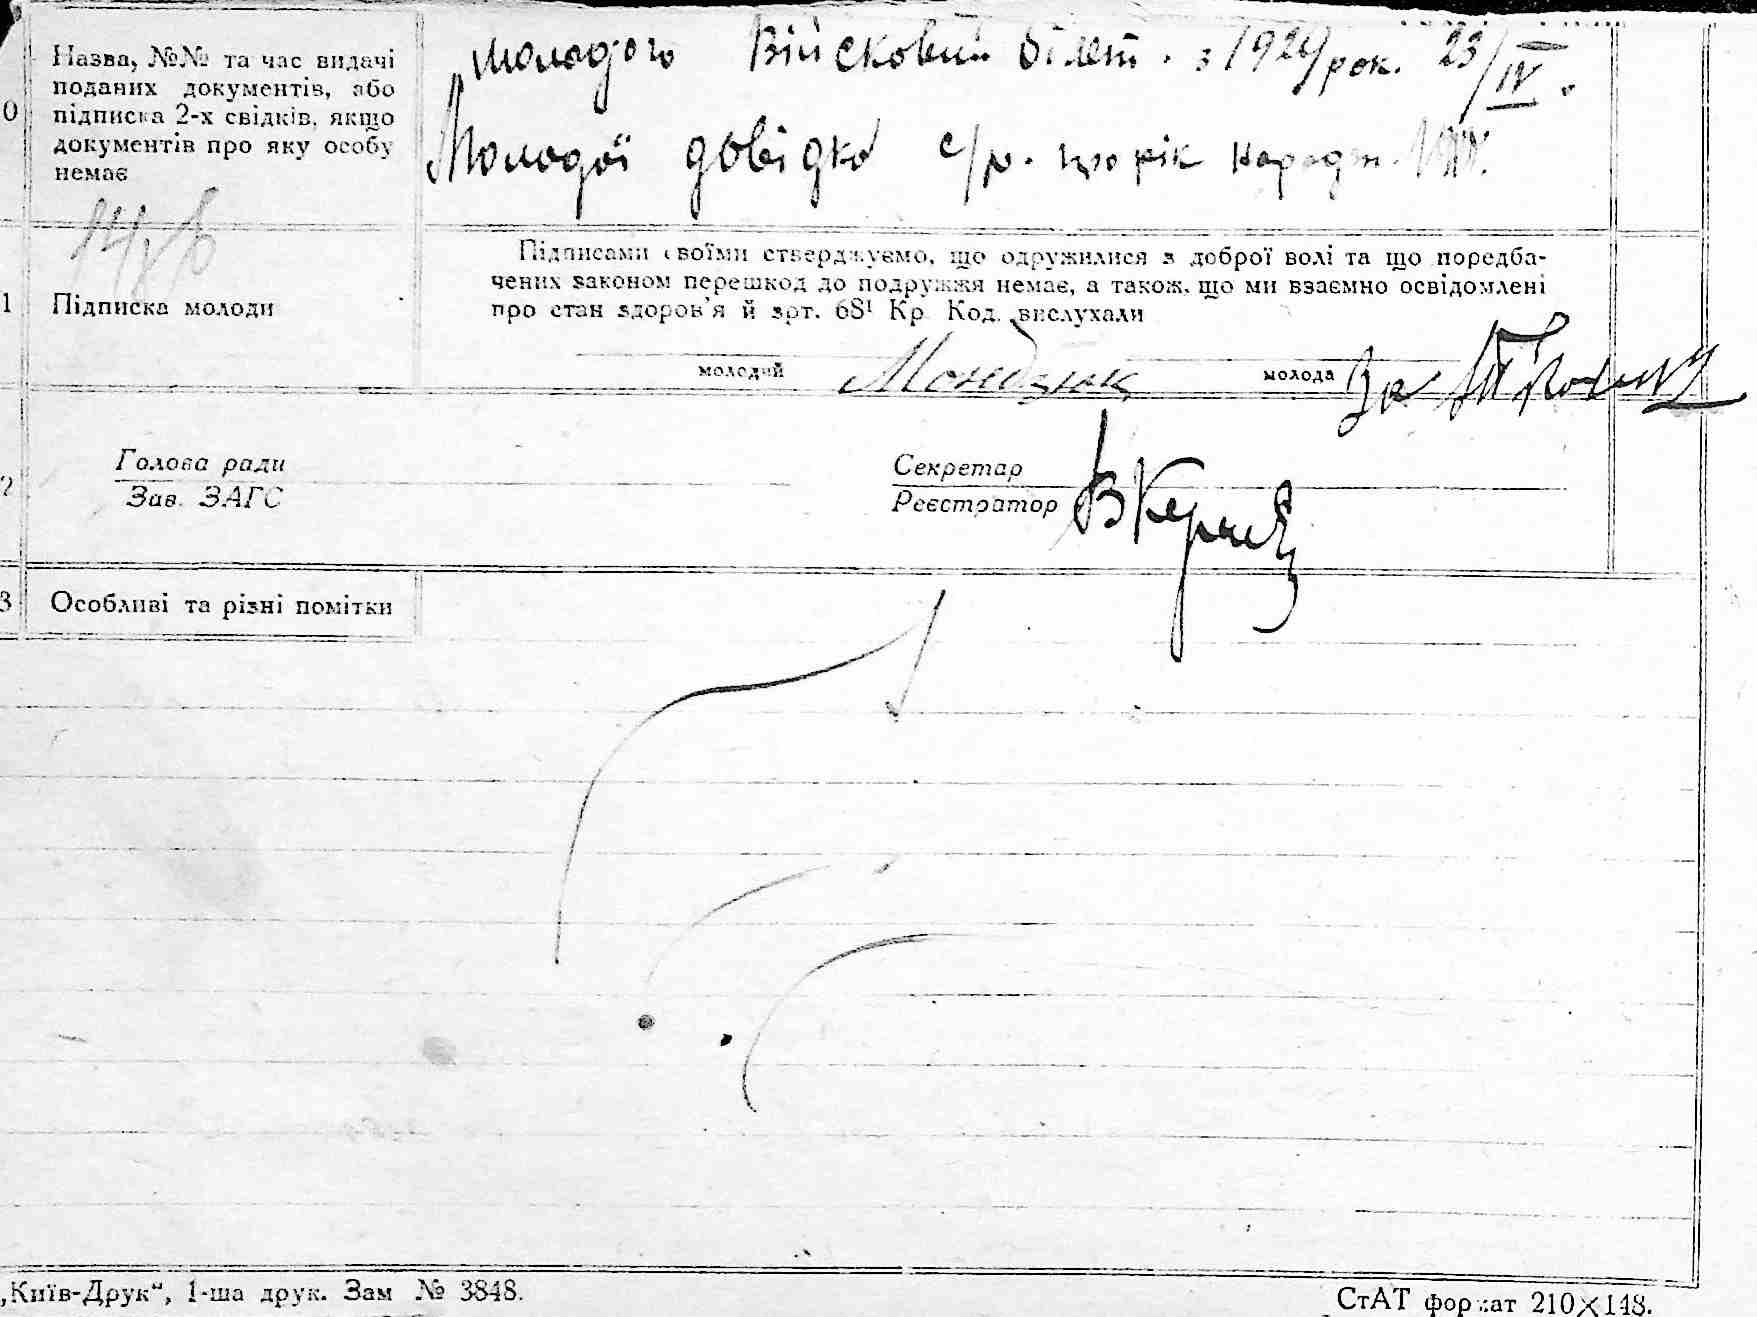 Молодого Військовий білет. з 1929 рок. 23/IV.
0
Назва, №№ та час видачі
поданих документів, або
підписка 2-х свідків, якщо
документів про яку особу
немає
Молодої довідка с/р. про рік народж.
1
Підписка молоди
Підписами своїми стверджуємо, що одружилися з доброї волі та що поредба-
чених законом перешкод до подружжя немає, а також, що ми взаємно освідомлені
про стан здоров'я й арт. 68¹ Кр. Код. вислухали
молодий
молода За
2
Голова ради
Зав. ЗАГС
Секретар
Реєстратор
3
Особливі та різні помітки
„Київ-Друк“, 1-ша друк. Зам № 3848.
СтАТ формат 210×148.